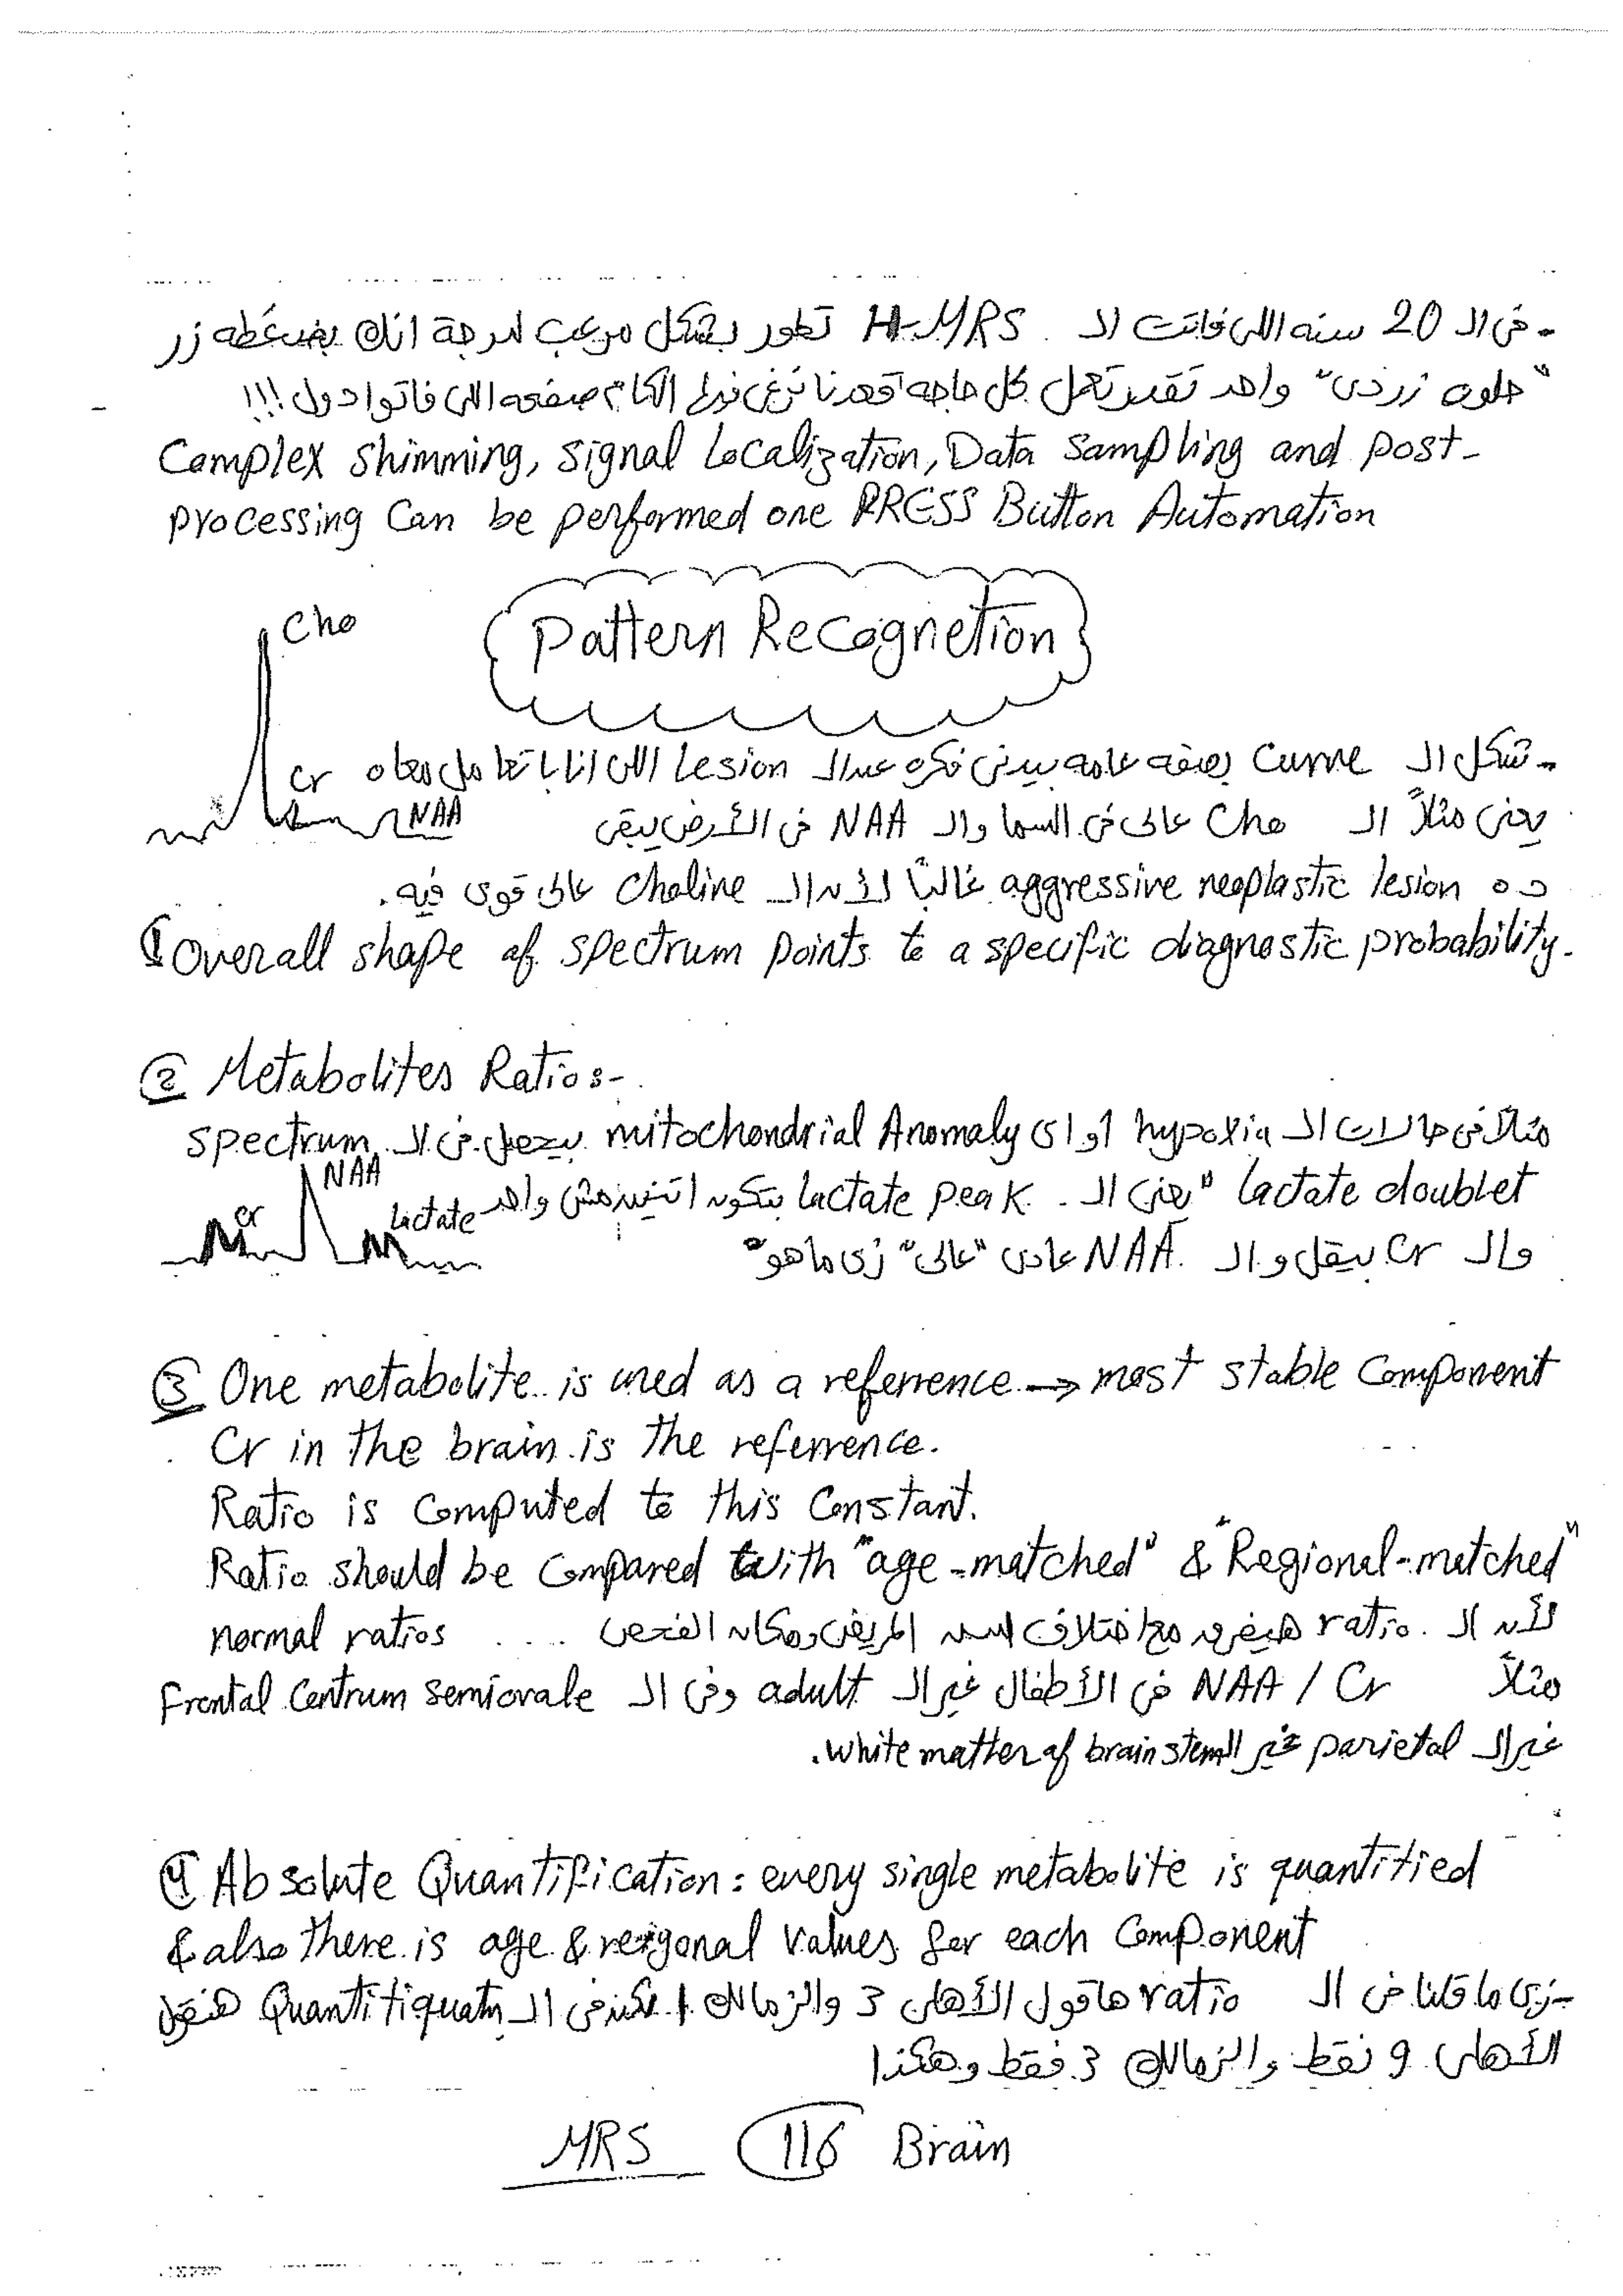 - فى الـ 20 سنه اللى فاتت الـ H-MRS تطور بشكل مرعب لدرجة انك بضغطه زر
"حلوه زردى" واحد تقدر تعمل كل حاجه قعدنا نرغى فيها الكام صفحه اللى فاتوا دول!!!
Complex shimming, signal Localization, Data sampling and post-
processing Can be performed one PRESS Button Automation
Pattern Recognetion
Cho
Cr
NAA
- شكل الـ Curve بصفه عامه بيدنى فكره عن الـ Lesion اللى انا باتعامل معاه
يعنى مثلاً الـ Cho عالى فى السما والـ NAA فى الأرض يبقى
ده aggressive neoplastic lesion غالباً لأن الـ Choline عالى قوى فيه.
① Overall shape of spectrum points to a specific diagnostic probability.
② Metabolites Ratios:-
مثلاً فى حالات الـ hypoxia او اى mitochondrial Anomaly بيحصل فى الـ spectrum
lactate doublet "يعنى الـ lactate peak بتكون اتنين مش واحد
والـ Cr بيقل والـ NAA عادى "عالى" زى ماهو"
Cr
NAA
Lactate
③ One metabolite is used as a referrence → most stable Component
Cr in the brain is the referrence.
Ratio is Computed to this Constant.
Ratio should be Compared with "age-matched" & "Regional-matched"
normal ratios .... لأن الـ ratio هيفرق مع اختلاف سن المريض ومكان الفحص
مثلاً NAA / Cr فى الأطفال غير الـ adult وفى الـ Frontal Centrum semiovale
غير الـ parietal غير الـ white matter of brain stem.
④ Absolute Quantification: every single metabolite is quantitied
& also there is age & reigonal values for each Component
- زى ما قلنا فى الـ ratio هاقول الأهلى 3 والزمالك 1 لكن فى الـ Quantitiquatn هنقول
الأهلى 9 نقط والزمالك 3 فقط وهكذا
MRS 116 Brain